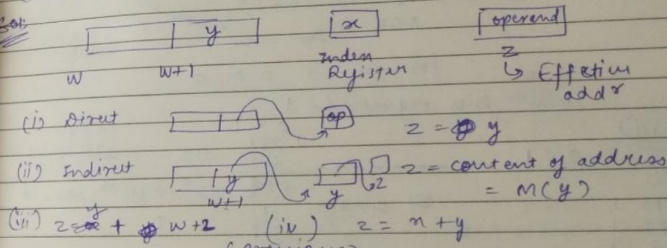 Sol:
y x operand
w w+1 Index Register z
↳ Effective addr
(i) Direct op z = y
(ii) Indirect y w+1 y z z = content of address
= M(y)
(iii) z = y + w+2 (iv) z = x + y